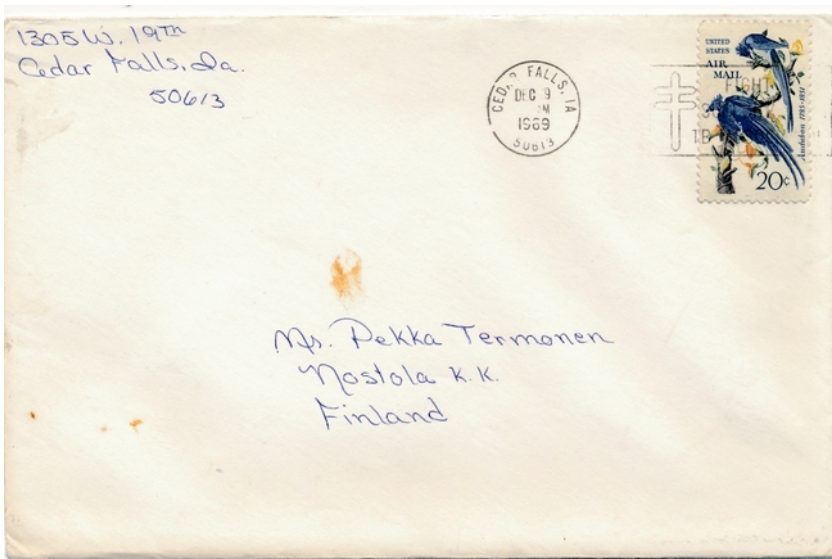 1305 W. 19TH
Cedar Falls, Ia.
50613
CEDAR FALLS, IA
DEC 9
M
1969
50613
UNITED
STATES
AIR
MAIL
FIGHT
TB
Audubon 1785-1851
20c
Mr. Pekka Termonen
Nostola K.K.
Finland